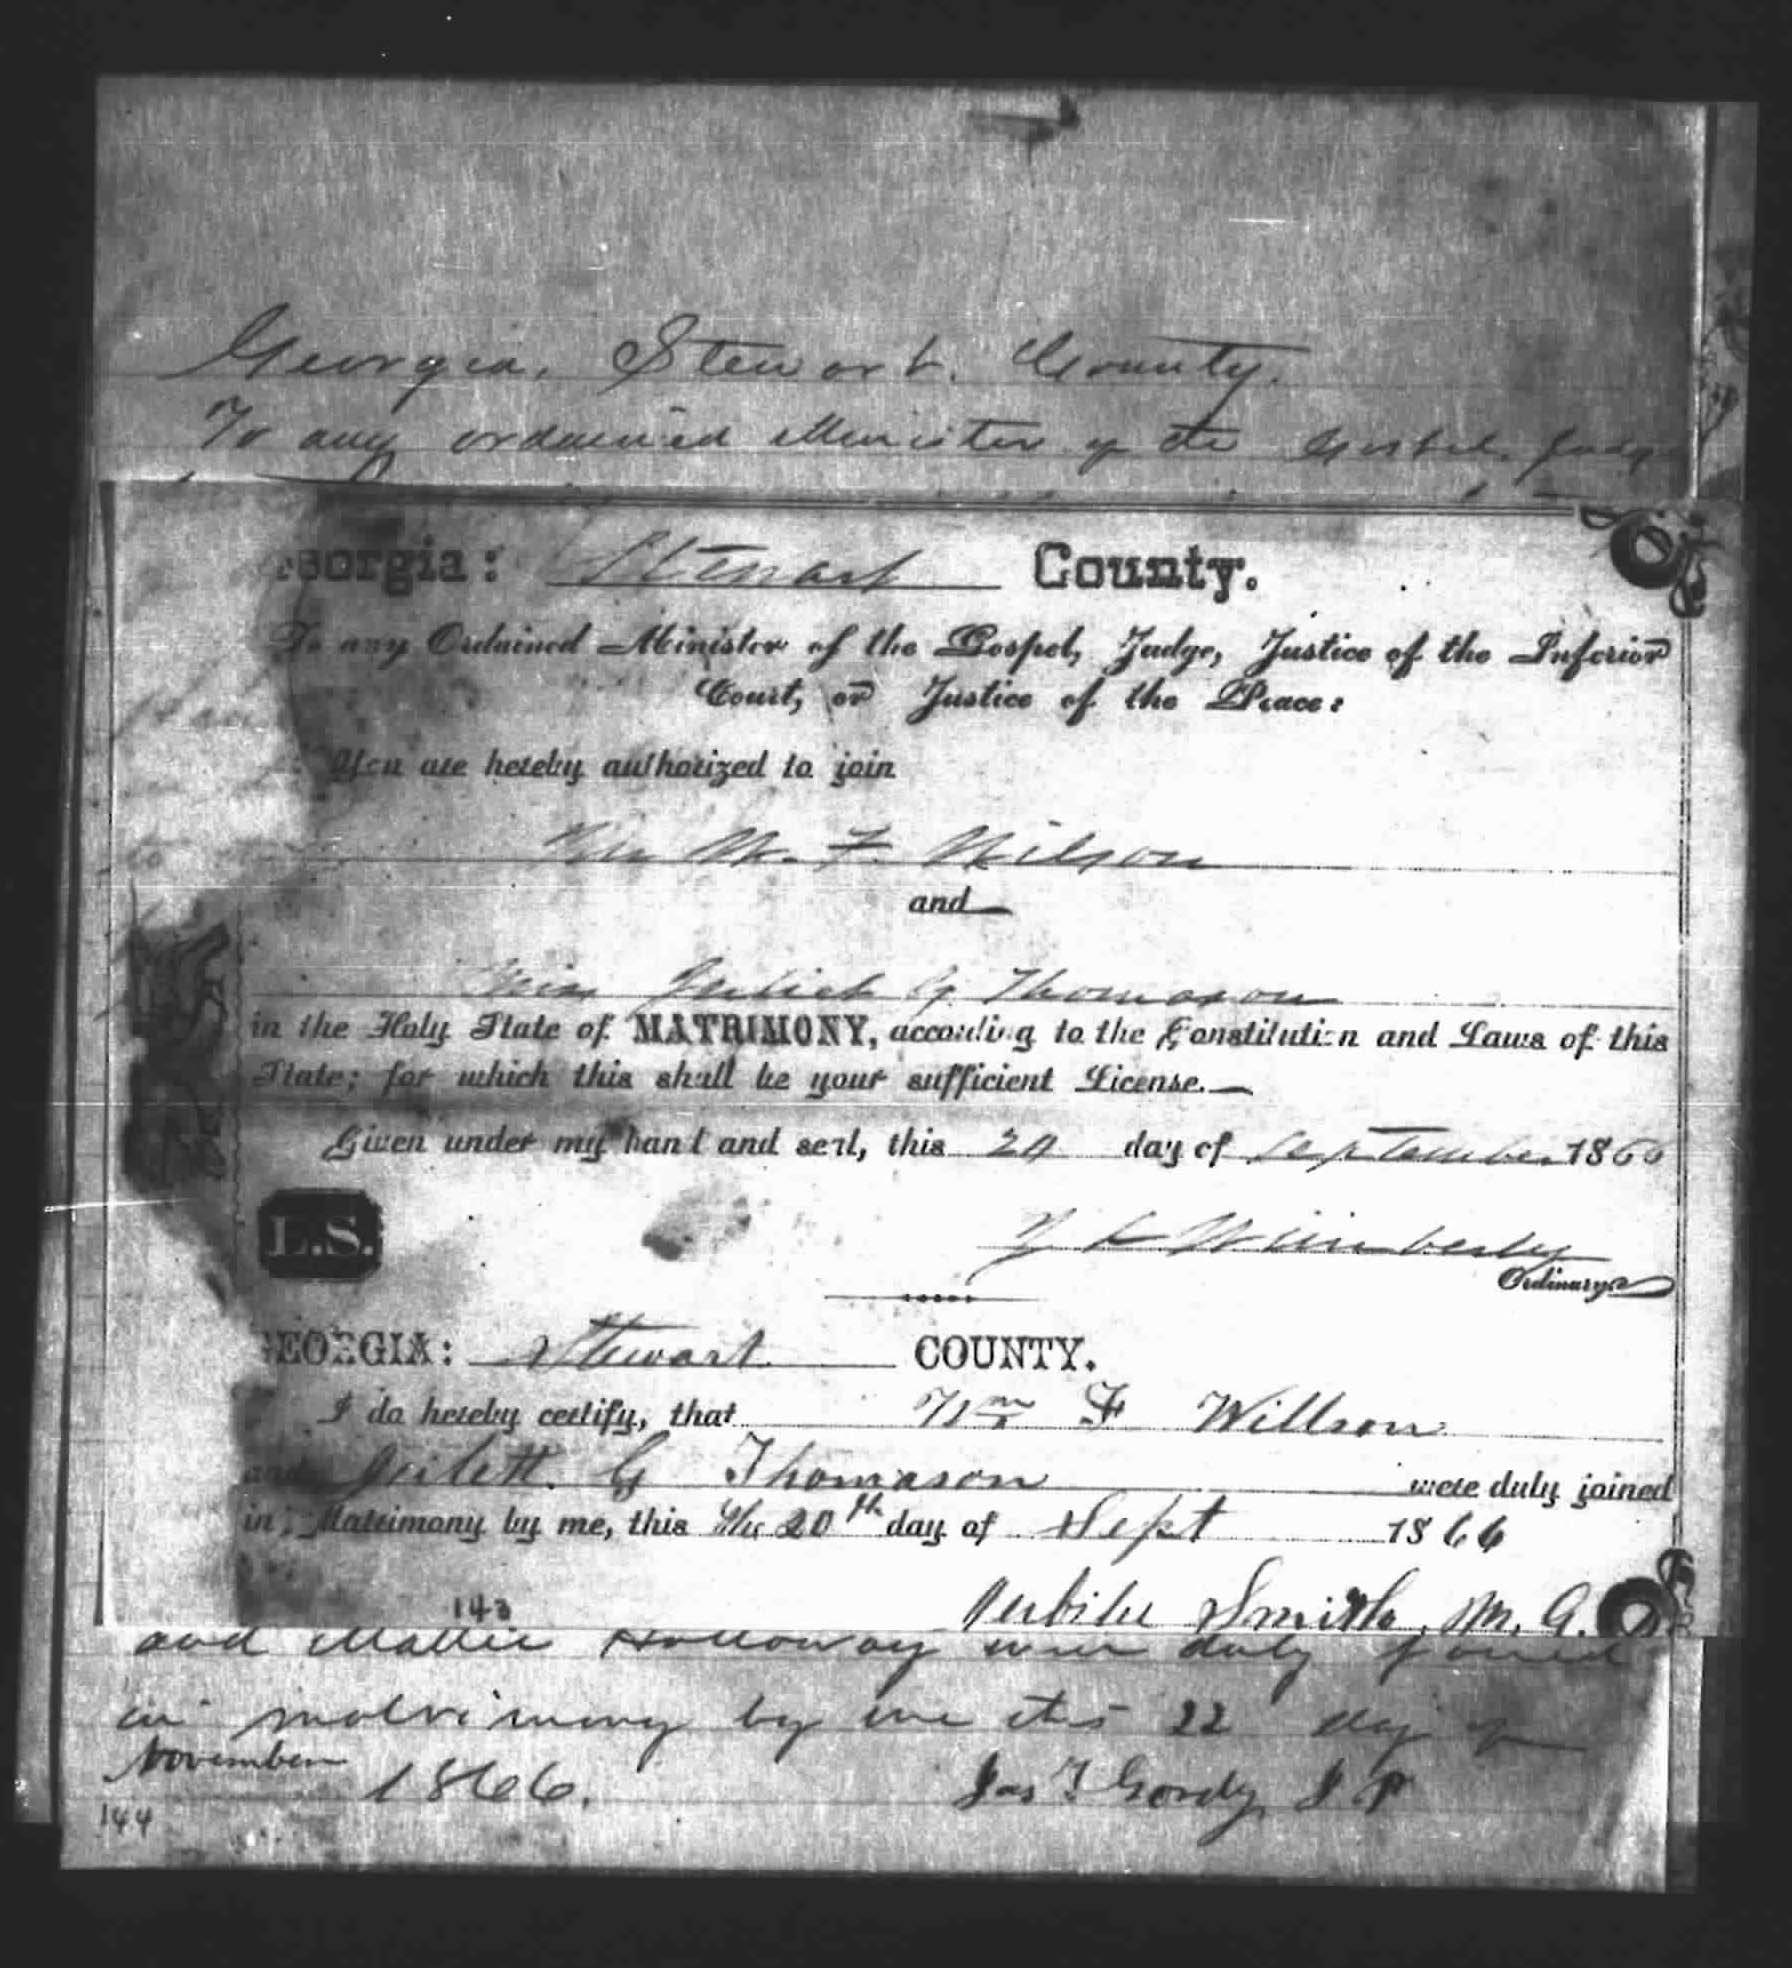 Georgia, Stewart. County.
To any ordained Minister of the Gospel, Judge
eorgia: Stewart County.
To any Ordained Minister of the Gospel, Judge, Justice of the Inferior
Court, or Justice of the Peace:
You are hereby authorized to join
W. F. Wilson
and
Miss G. Thomason
in the Holy State of MATRIMONY, according to the Constitution and Laws of this
State; for which this shall be your sufficient License.
Given under my hand and seal, this 20 day of September 1866
L.S.
Wimberly
Ordinary.
GEORGIA: Stewart COUNTY.
I do hereby certify, that Wm F Willson
and G Thomason were duly joined
in Matrimony by me, this the 20th day of Sept 1866
143
Smith, M. G.
and Mattie Holloway were duly joined
in matrimony by me this 22 day of
November 1866. Jas T Gordy J P
144